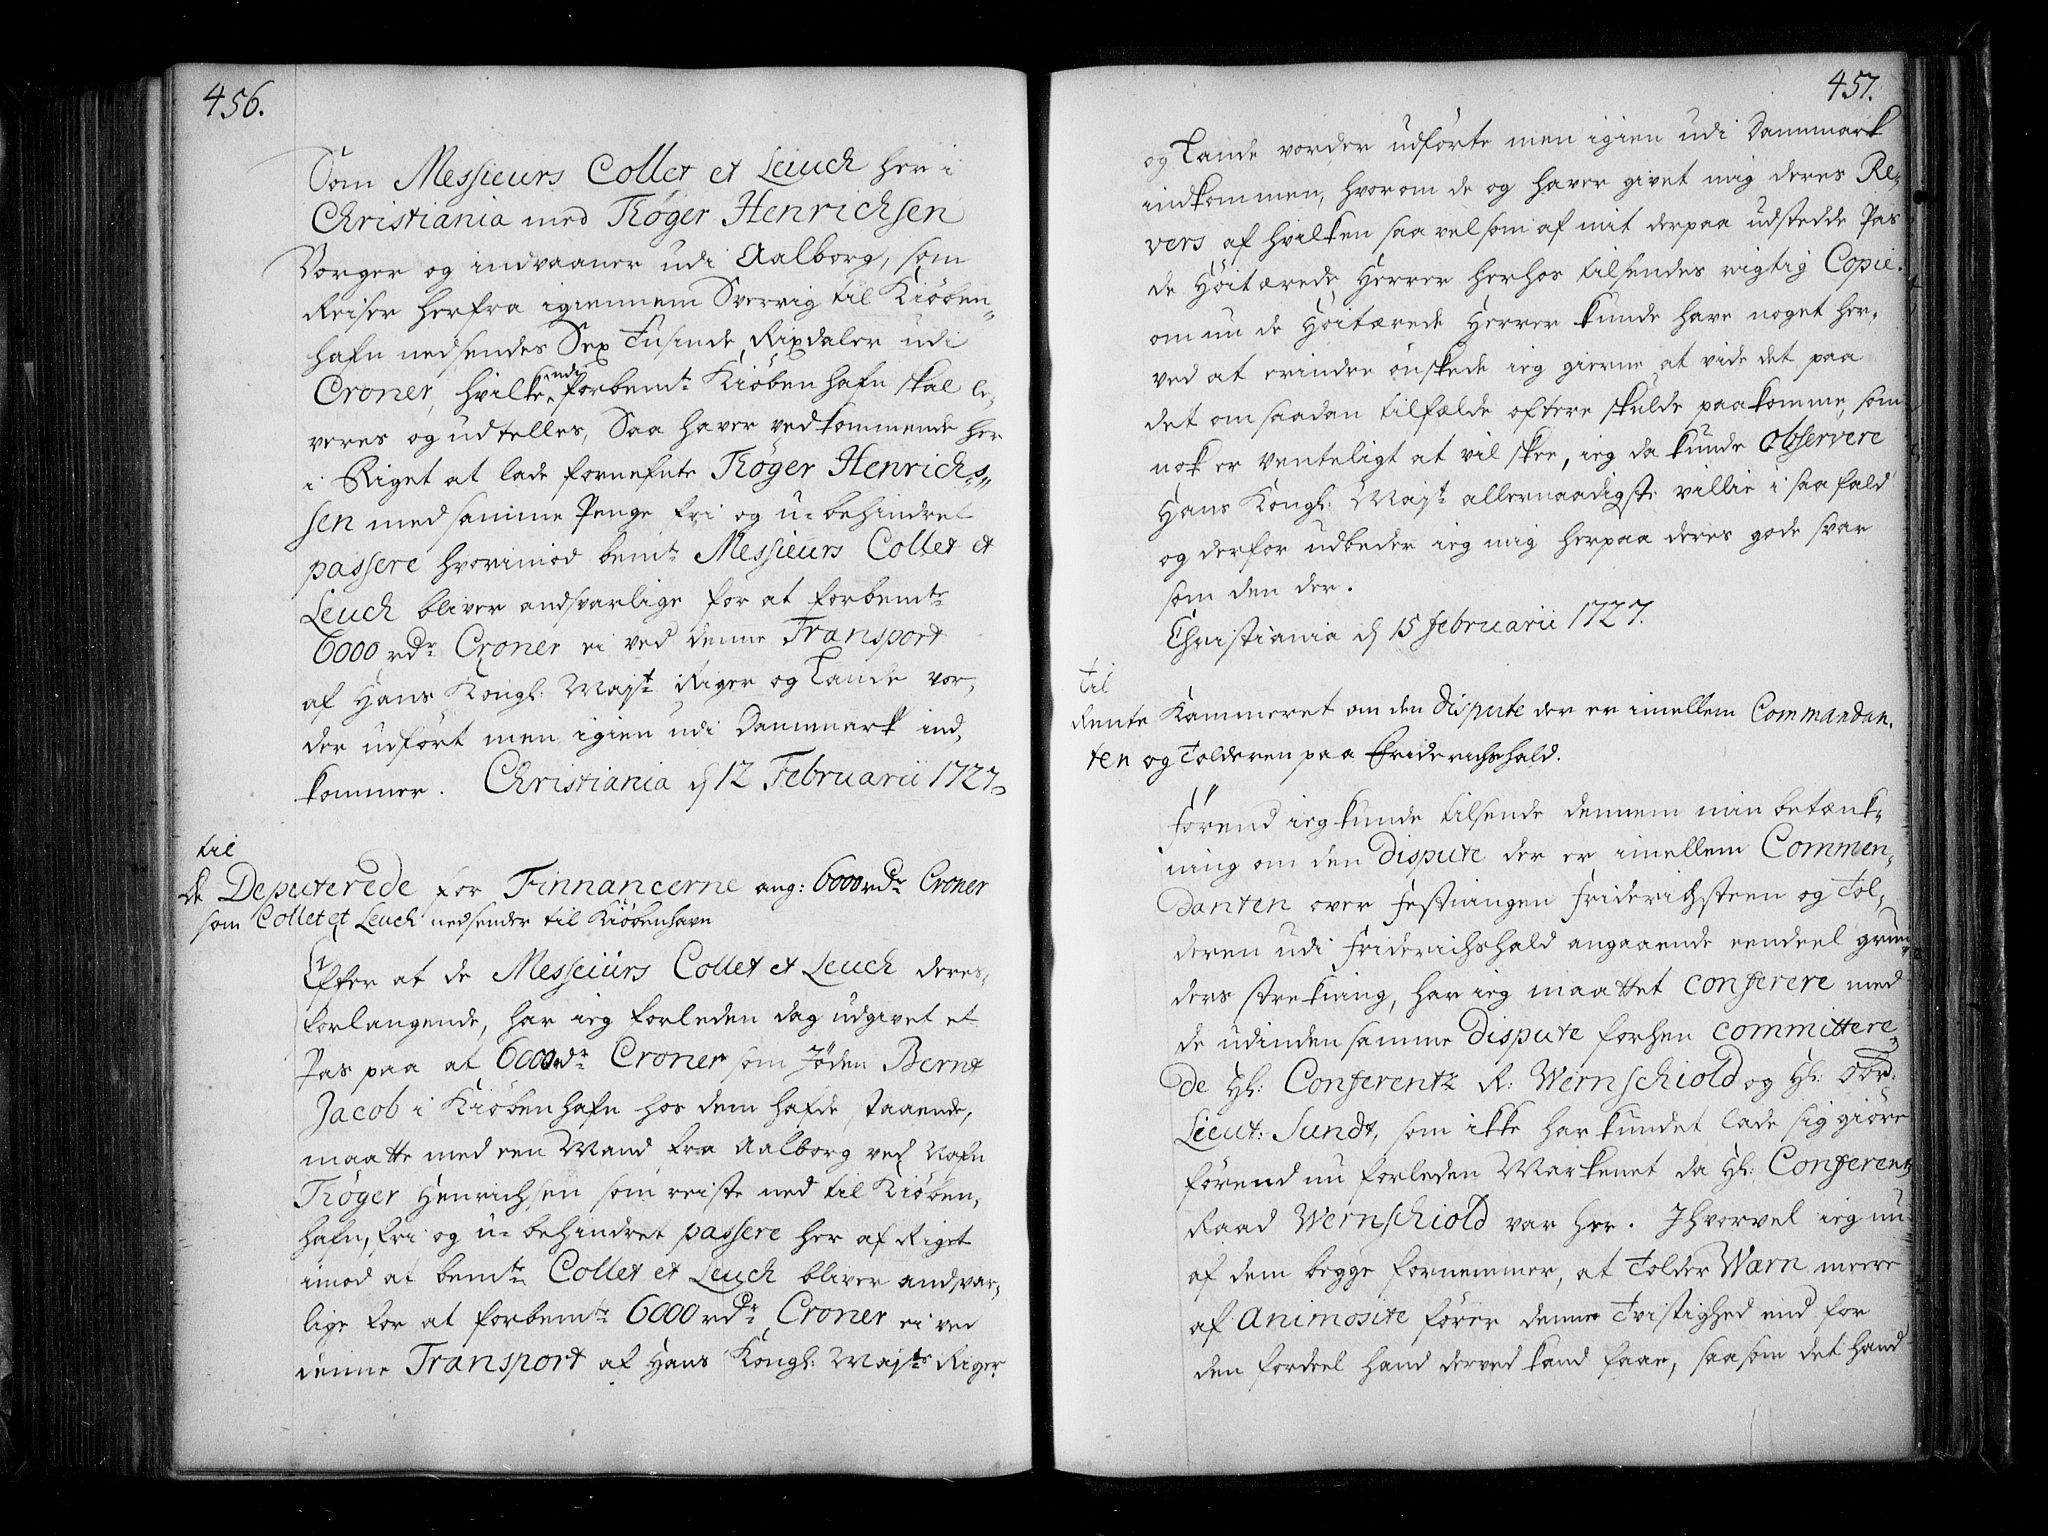 456.
Som Messieurs Collet et Leuch her i
Christiania med Tröger Henrichsen
Borger og indvaaner udi Aalborg, som
Reiser herfra igiennem Sverrig til Kiöben-
hafn nedsendes Sex Tusinde Rixdaler udi
Croner, hvilke udi forbemte Kiöbenhafn skal le-
veres og udtelles, Saa haver vedkommende her
i Riget at lade fornefnte Tröger Henrich-
sen med samme Penge fri og u-behindret
passere hvorimod bemte Messieurs Collet et
Leuch bliver andsvarlige for at forbemte
6000 rdr Croner ei ved denne Transport
af Hans Kongl: Majts Riger og Lande vor-
der udfört men igien udi Dannmark ind-
kommer. Christiania d 12 Februarii 1727
til
de Deputerede for Finnancerne ang: 6000 rdr Croner
som Collet et Leuch nedsender til Kiöbenhavn
Efter at de Messeiurs Collet et Leuch deres
forlangende, har ieg forleden dag udgivet et
Pas paa at 6000 rdr Croner som Jöden Bernt
Jacob i Kiöbenhafn hos dem hafde staaende,
maatte med een Mand fra Aalborg ved Nafn
Tröger Henrichsen som reiste ned til Kiöben-
hafn, fri og u-behindret passere her af Riget
imod at bemte Collet et Leuch bliver andsvar-
lige for at forbemte 6000 rdr Croner ei ved
denne Transport af Hans Kongl: Majts Riger
457.
og Lande vorder udförte men igien udi Dannmark
indkommen, hvorom de og haver givet mig deres Re-
vers af hvilken saa vel som af mit derpaa udstedde Pas
de Höitærede Herrer herhos tilsendes rigtig Copie.
om nu de Höitærede Herrer kunde have noget her-
ved at erindre önskede ieg gierne at vide det paa
det om saadan tilfælde oftere skulde paakomme, som
nok er venteligt at vil skee, ieg da kunde observere
Hans Kongl: Majts allernaadigste villie i saa fald
og derfor udbeder ieg mig herpaa deres gode svar
som den der.
Christiania d 15 Februarii 1727.
til
Rente Kammeret om den Dispute der er imellem Commandan-
ten og Tolderen paa Friderichshald.
Förend ieg kunde tilsende dennem min betænk-
ning om den Dispute der er imellem Commen-
danten over Festningen Friderichsteen og Tol-
deren udi Friderichshald angaaende eendeel grun-
ders strekning, har ieg maattet conferere med
de udinden samme Dispute forhen committere-
de Hl: Conferentz R: Wernschiold og Hl: Obr:
Lieut: Sundt, som ikke har kundet lade sig giöre
förend nu forleden Markenet da Hl: Conferentz
Raad Wernschiold var her. Ihvorvel ieg nu
af dem begge fornemmer, at Tolder Wærn meere
af Animosite förer denne Tvistighed end for
den fordeel hand derved kand faae, saasom det hand